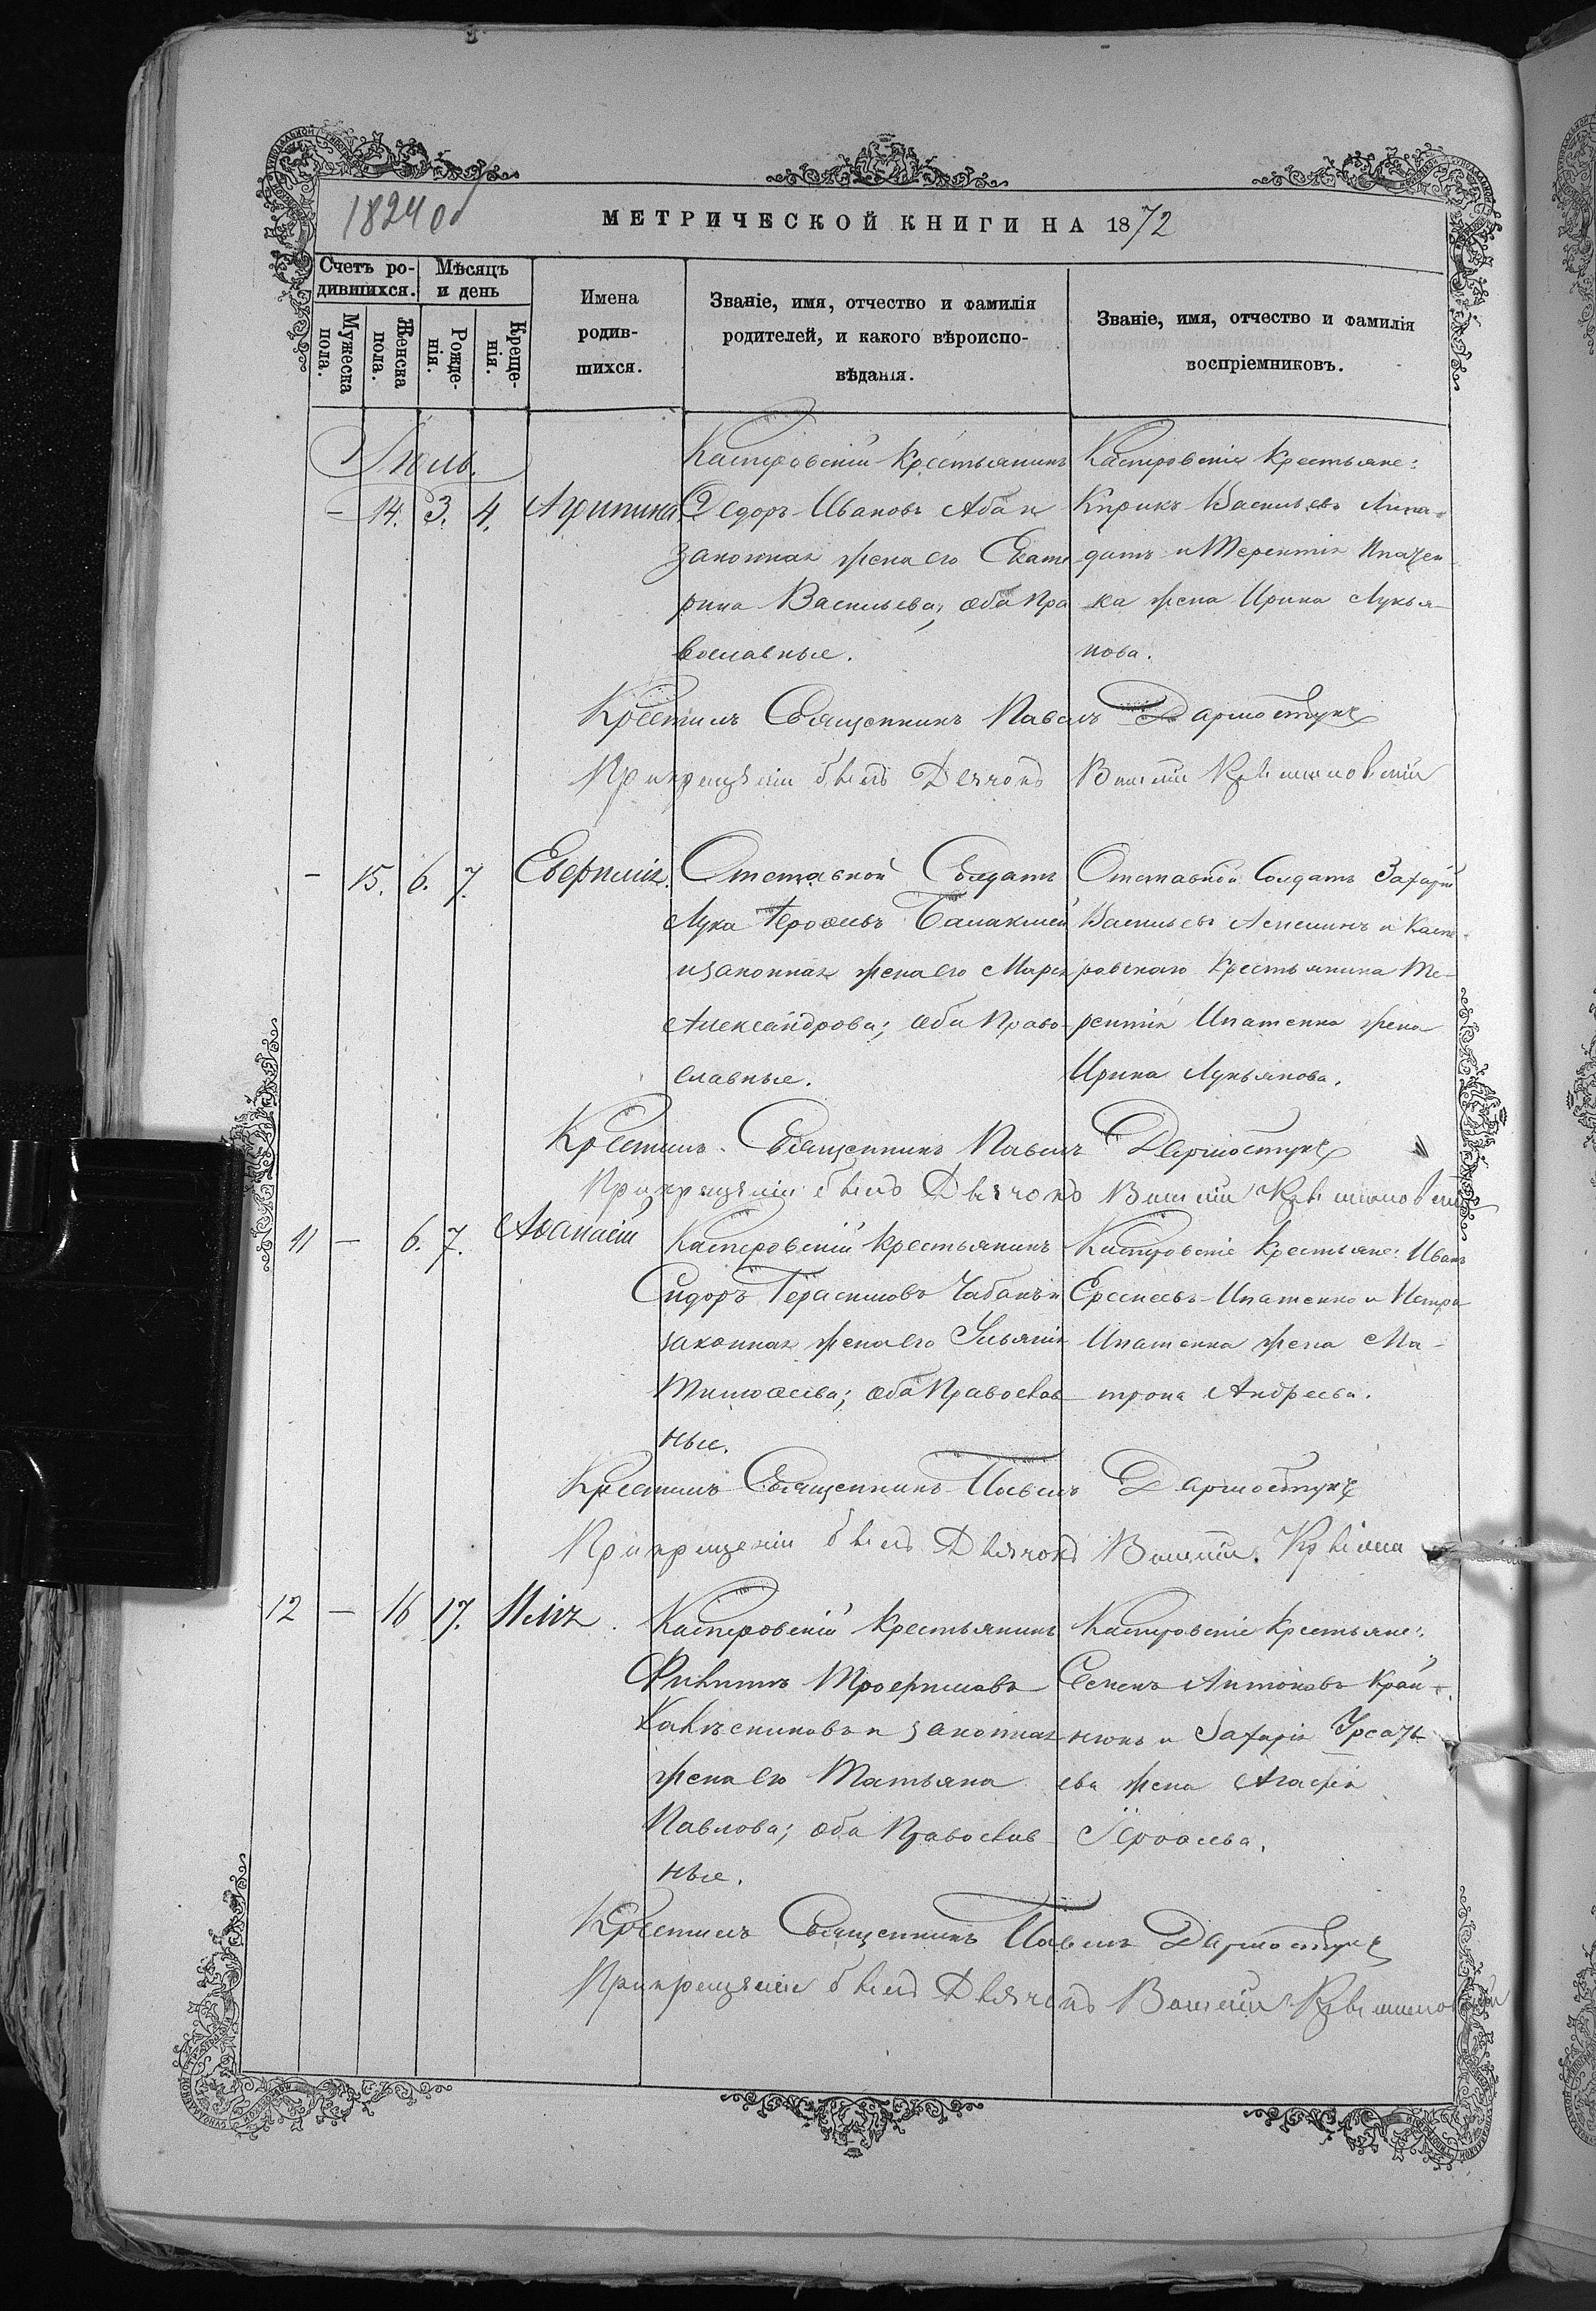 1824 об
МЕТРИЧЕСКОЙ КНИГИ НА 1872
Счетъ родившихся.
Мѣсяцъ и день
Мужеска пола.
Женска пола.
Рожденія.
Крещенія.
Имена
родив-
шихся.
Званіе, имя, отчество и фамилія
родителей, и какого вѣроиспо-
вѣданія.
Званіе, имя, отчество и фамилія
воспріемниковъ.
Іюль.
– 14. 3. 4.
Касперовскій крестьянинъ
Ѳедоръ Ивановъ
законная жена его Екате
рина Васильева, оба Пра
вославные.
Касперовскіе крестьяне:
Кирикъ Васильевъ
и Терентія
жена Ирина Лукья-
нова.
Крестилъ Священникъ Павелъ
При крещеніи былъ Дьячокъ
– 15. 6. 7. Евфимія.
Отставной Солдатъ
Лука
и законная жена его Марѳа
Александрова; оба Право-
славные.
Отставной Солдатъ Захарій
Васильевъ и Каспе-
ровскаго крестьянина Те-
рентія Ипатенка жена
Ирина Лукьянова.
Крестилъ Священникъ Павелъ
При крещеніи былъ Дьячокъ
11 – 6. 7. Аѳанасій
Касперовскій крестьянинъ
Сидоръ Герасимовъ Чабанъ и
законная жена его Ульянія
Тимоѳеева; оба Православ
ные.
Касперовскіе крестьяне: Иванъ
Ереѳеевъ Ипатенко и Петра
Ипатенка жена Ма-
трона Андреева.
Крестилъ Священникъ Павелъ
При крещеніи былъ Дьячокъ
12 – 16 17. Илія.
Касперовскій крестьянинъ
Филиппъ Трофимовъ
и законная
жена его Татьяна
Павлова; оба Православ
ные.
Касперовскіе крестьяне:
Семенъ Антоновъ Край-
нюкъ и Захарія
ева жена Агафія
Іероѳеева.
Крестилъ Священникъ Павелъ
При крещеніи былъ Дьячокъ